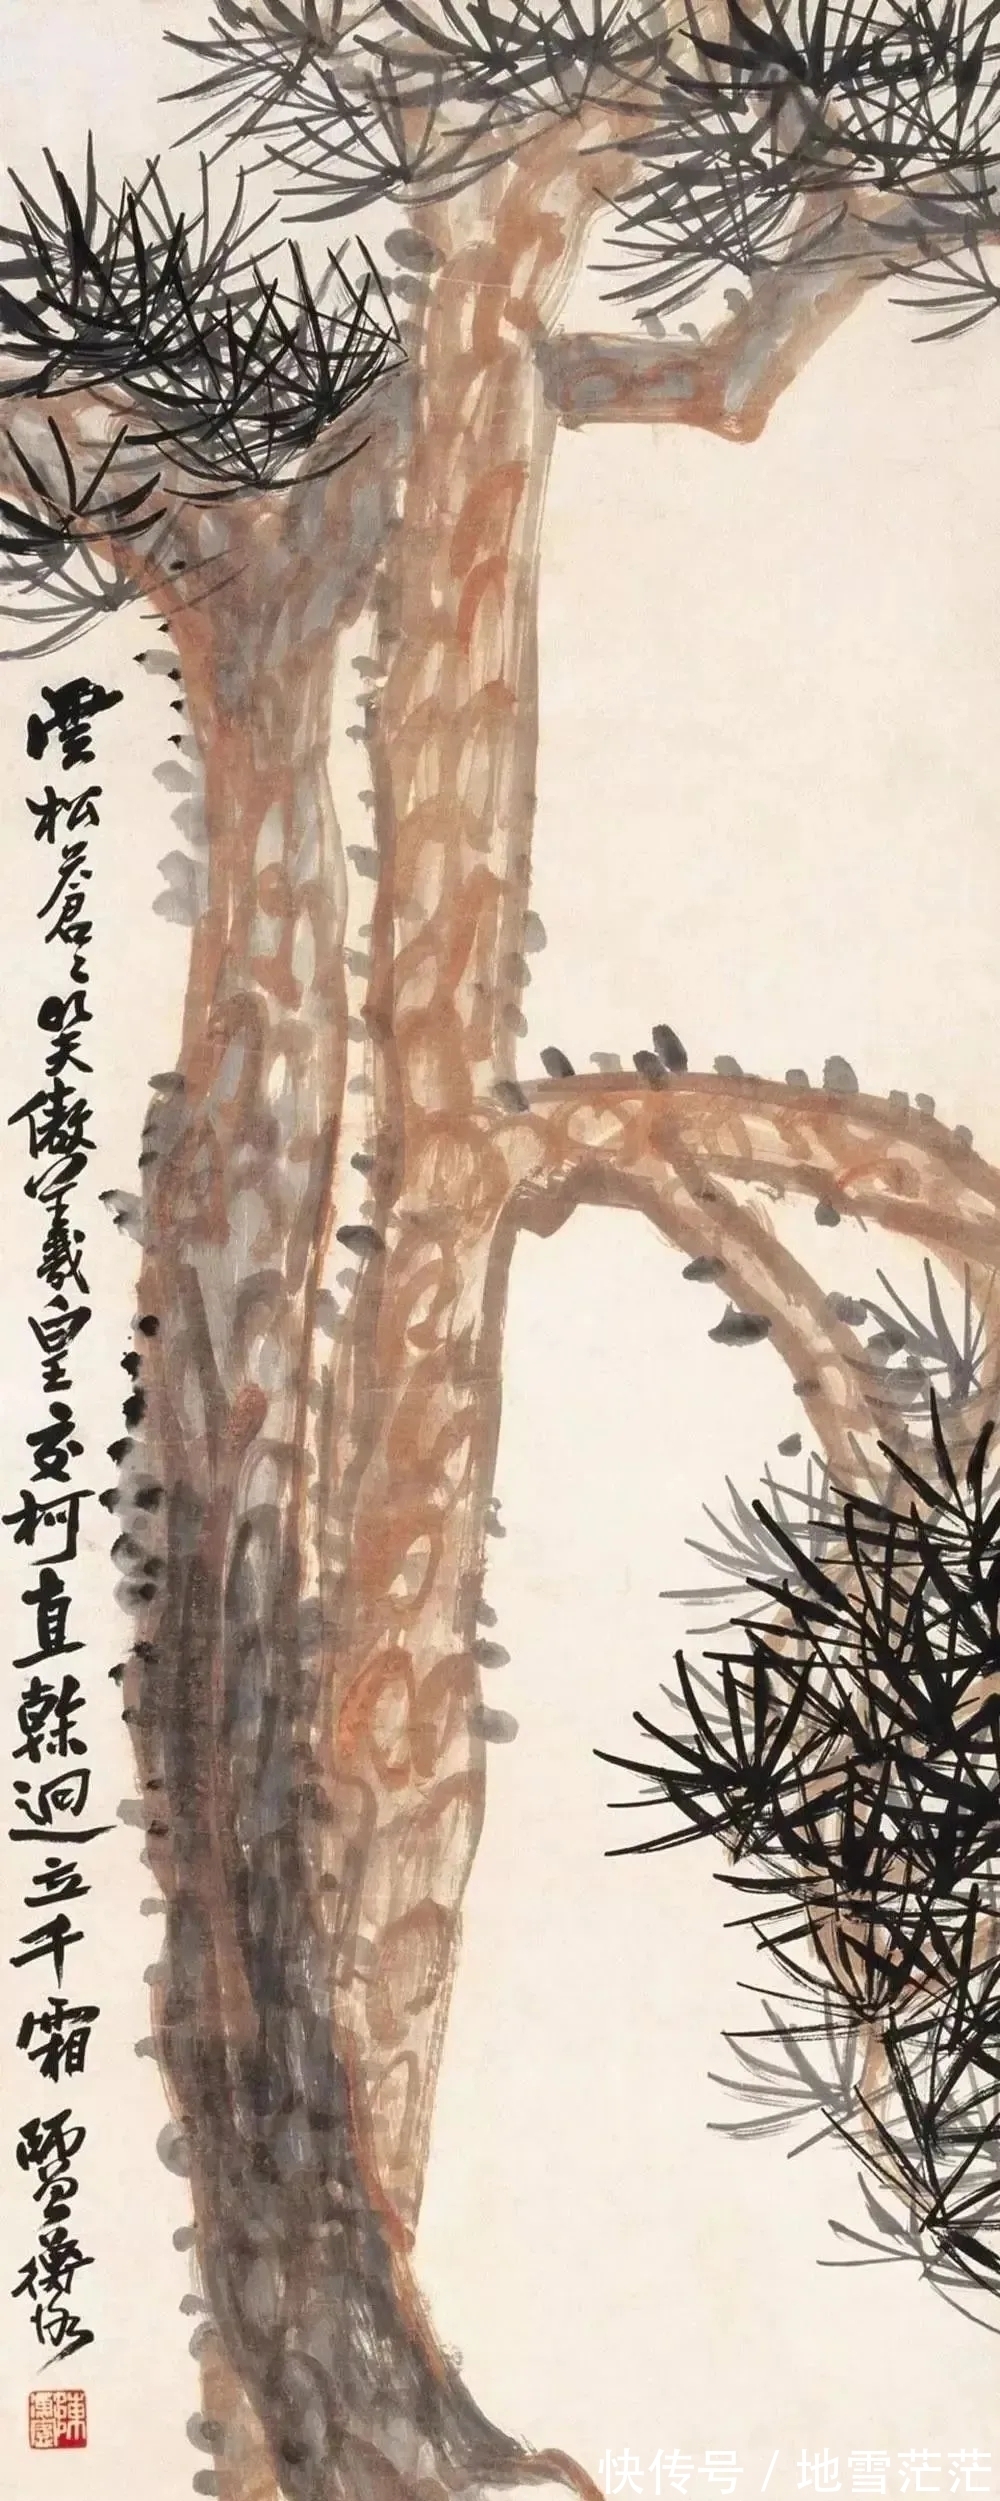 雲松蒼〻笑傲羲皇交柯直榦迥立千霜 師曾衡恪
快传号／地雪茫茫